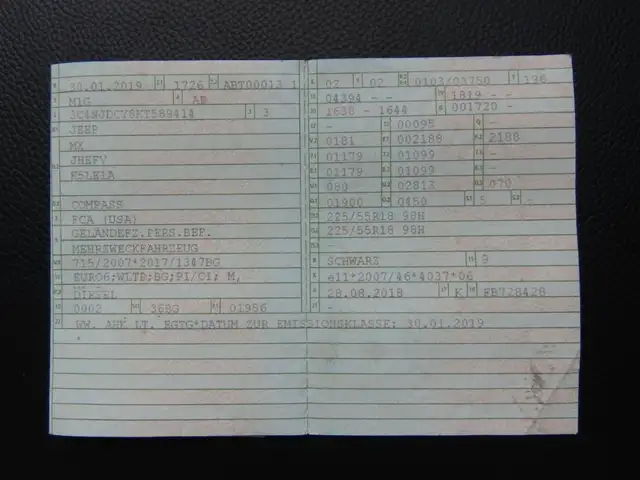 30.01.2019 1726 ABT00013 1
M1G AB
3
JEEP
MX
JHEFV
COMPASS
FCA (USA)
GELÄNDEFZ.PERS.BEF.
MEHRZWECKFAHRZEUG
715/2007*2017/1347BG
EURO6;WLTP;BG;PI/CI; M,
DIESEL
0002 36BG 01956
WW. AHK LT. EGTG*DATUM ZUR EMISSIONSKLASSE: 30.01.2019
02 02 0103/03750 196
04394 - - 1819 - -
1638 - 1644 001720 -
- 00095 -
0181 002188 2188
01179 01099 -
01179 01099 -
080 02813 070
01900 0450 5 -
225/55R18 98H
225/55R18 98H
-
SCHWARZ 9
e11*2007/46*4037*06
28.08.2018 K FB728428